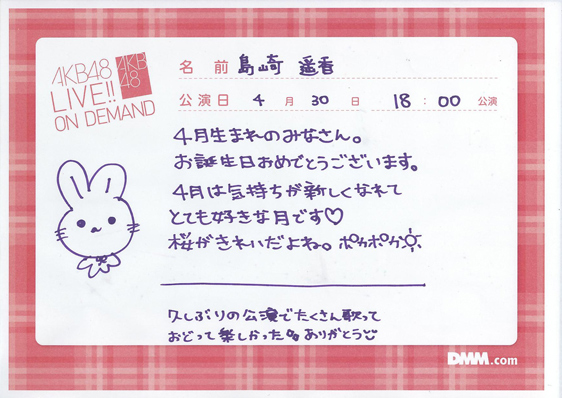 AKB48
LIVE!!
ON DEMAND
AKB
48
名 前 島崎 遥香
公演日 4 月 30 日 18:00 公演
4月生まれのみなさん。
お誕生日おめでとうございます。
4月は気持ちが新しくなれて
とても好きな月です♡
桜がきれいだよね。ポカポカ☼
久しぶりの公演でたくさん歌って
おどって楽しかった♪ありがとう
DMM.com